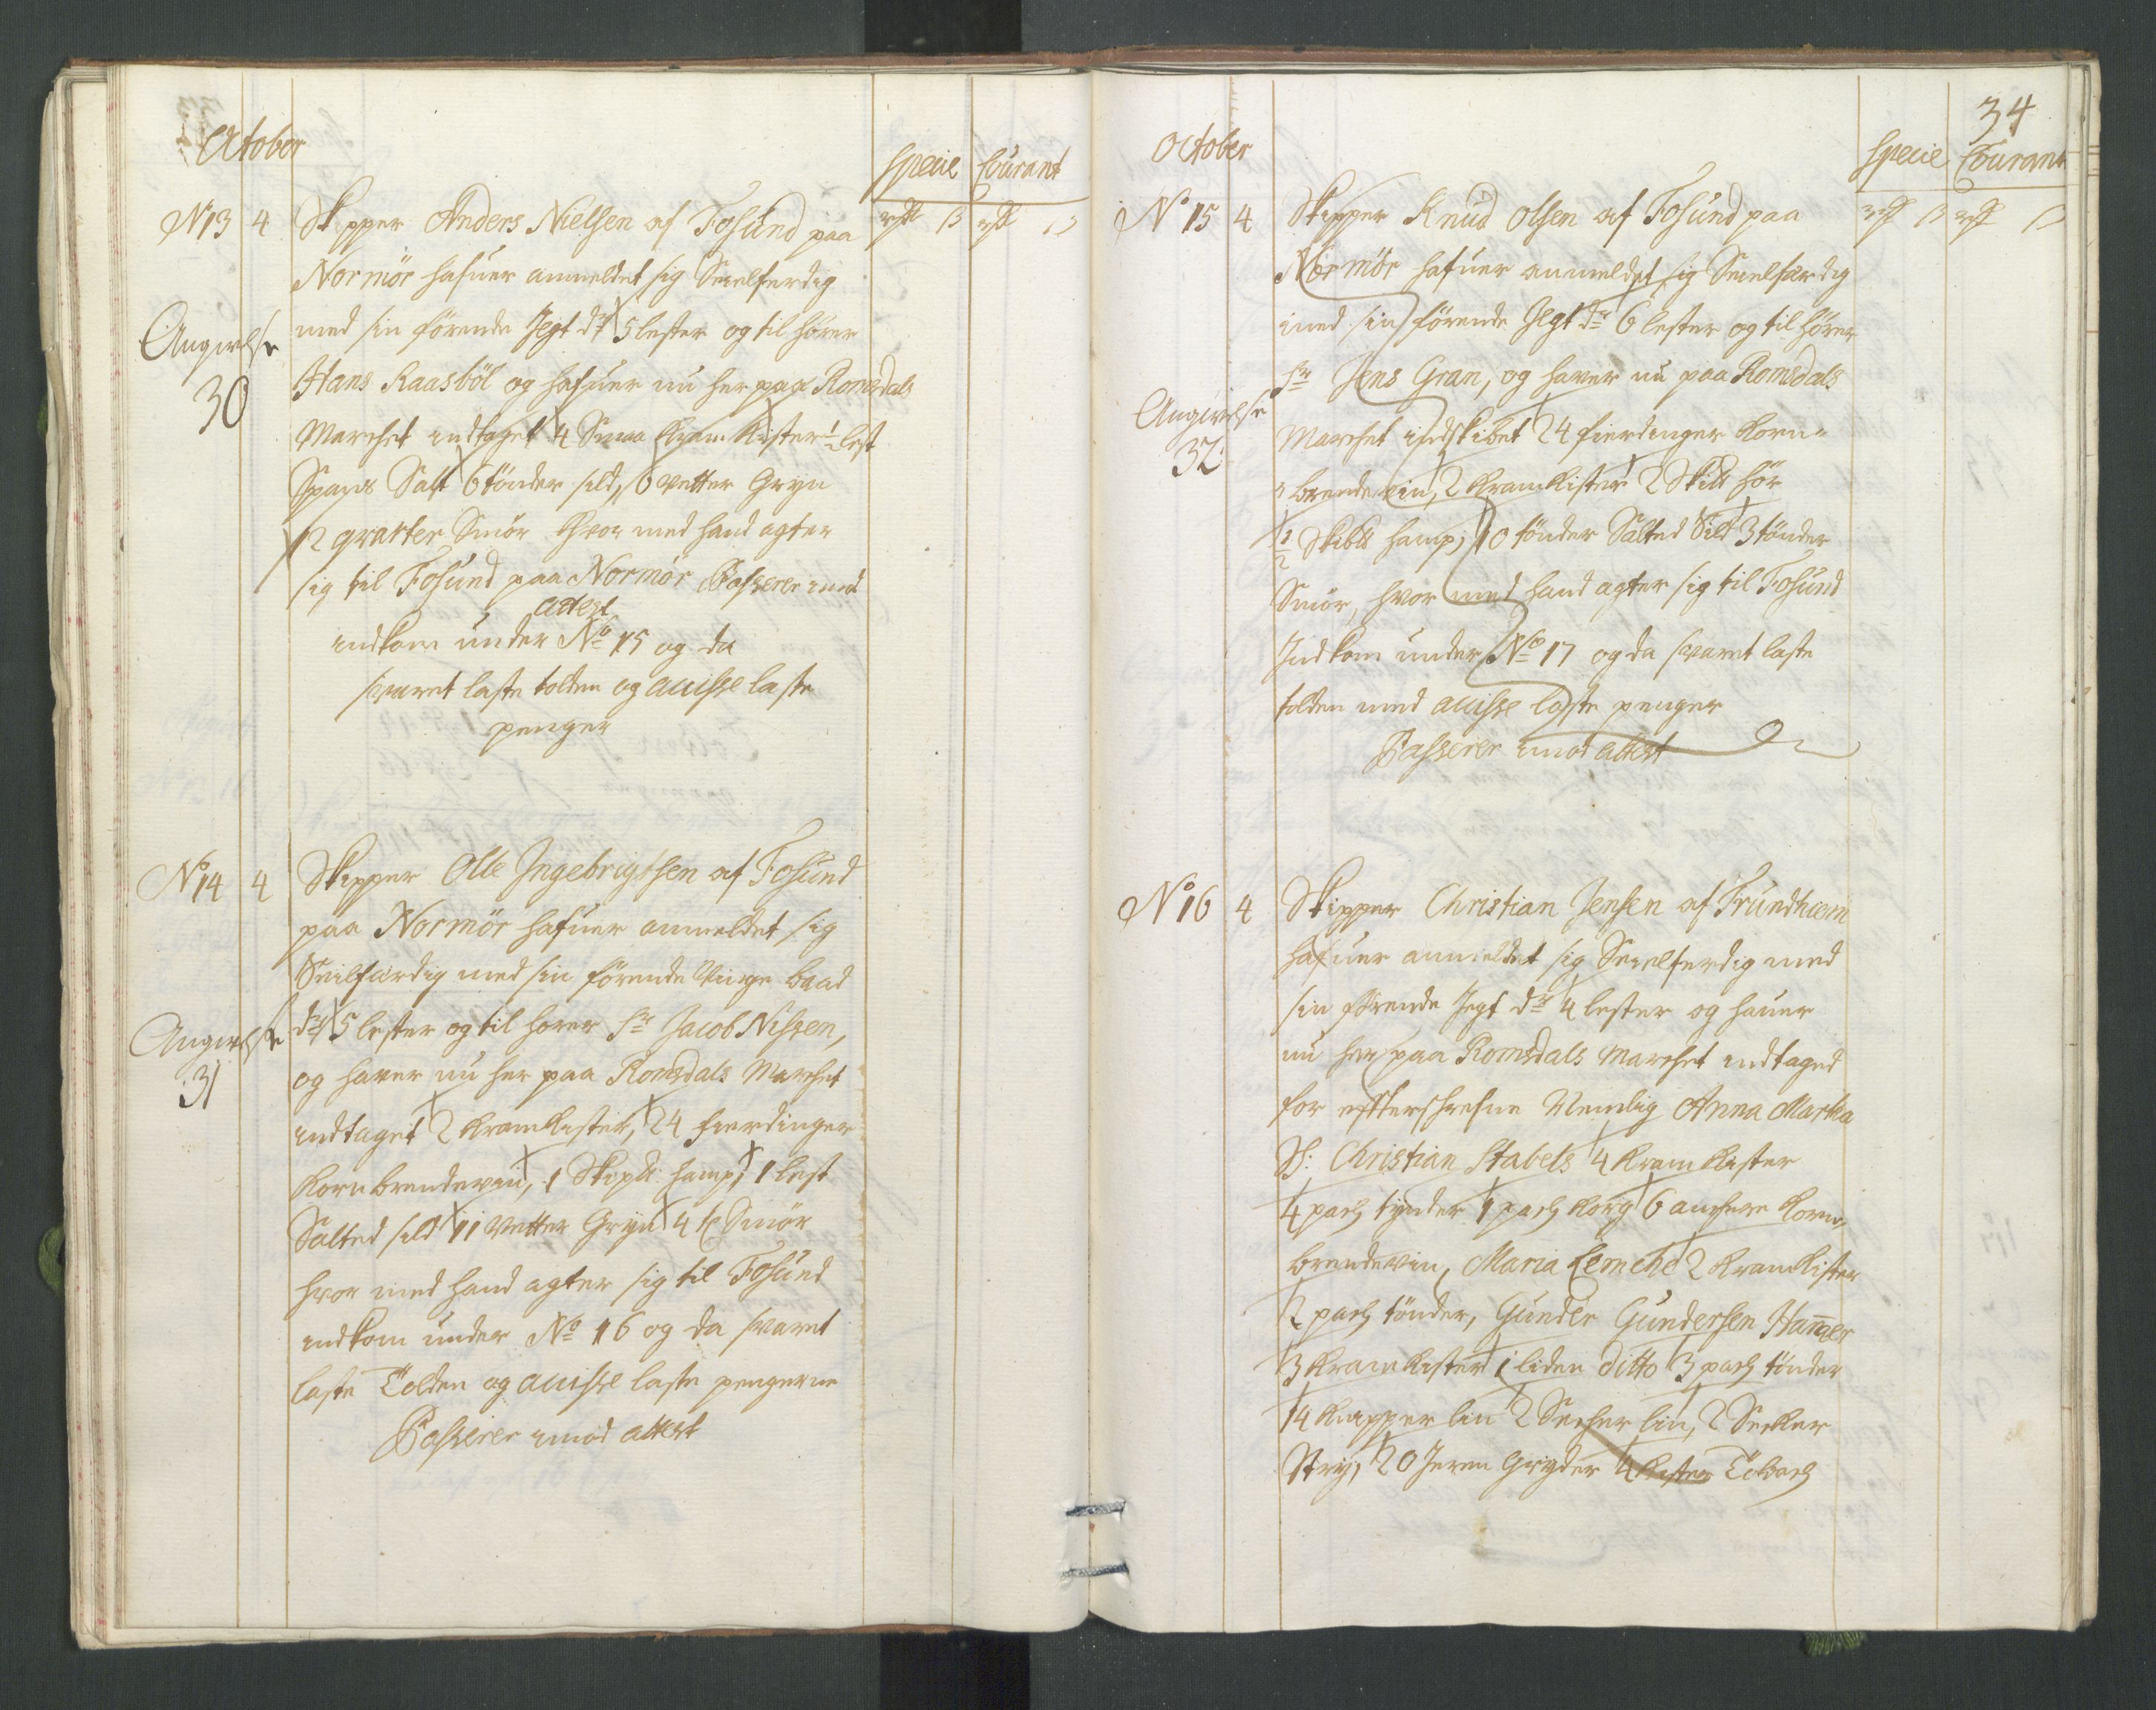 October
Specie Courant
rdr ß rdr ß
No 13 4 Skipper Anders Nielsen af Fosund paa
Normör hafuer anmeldet sig Seielferdig
med sin förende Jegt dr 5 lester og til hörer
Angivelse
30
Hans Raasböl og hafuer nu her paa Romsdals
Marchet indtaget 4 Smaa Kram Kister ½ lest
Spans Salt 6 tönder sild, 6 vetter Gryn
12 qvarter Smör hvor med hand agter
sig til Fosund paa Normör Passerer imod
attest
indkom under No 15 og da
svaret laste tolden og auisse laste
penger
No 14 4 Skipper Olle Ingebrigtsen af Fosund
paa Normör hafuer anmeldet sig
Seilfærdig med sin förende Baad
dr 5 lester og til horer Sr Jacob Nissen,
Angivelse
31
og haver nu her paa Romsdals Marchet
indtaget 2 Kramkister, 24 fierdinger
Korn brendevin, 1 Skipd: hamp, 1 lest
Salted sild 11 vetter Gryn 4 Smör
hvor med hand agter sig til Fosund
indkom under No 16 og da svaret
laste Tolden og auisse laste pengerne
Passerer imod attest
34
October
Specie Courant
rdr ß rdr ß
No 15 4 Skipper Knud Olsen af Fosund paa
Normör hafuer anmeldet sig Seielfærdig
med sin förende Jegt dr 6 lester og til hörer
Sr Jens Gran, og haver nu paa Romsdals
Angivelse
32
Marchet indskibet 24 fierdinger Korn-
brendevin, 2 Kramkister 2 Skilb hör
½ Skibb hamp, 10 tönder Salted Sild 3 tönder
Smör, hvor med hand agter sig til Fosund
Indkom under No 17 og da svaret laste
tolden med auisse laste penger
Passerer imod attest
No 16 4 Skipper Christian Jensen af Trundhiem
hafuer anmeldet sig Seielferdig med
sin förende Jegt dr 4 lester og hauer
nu her paa Romsdals Marchet indtaged
for effterschrefne Nemlig Anna Marka
Sl: Christian Stabels 4 Kramkister
4 pach tynder 1 pach Korg 6 anchere Korn-
brendevin, Maria Lemche 2 Kramkister
2 pach tönder, Gunder Gundersen Hammer
3 Kramkister 1 liden ditto 3 pach tönder
14 Knapper lin 2 Secher lin, 2 Secker
Stry, 20 Jeren Gryder 4 Kister Tobach